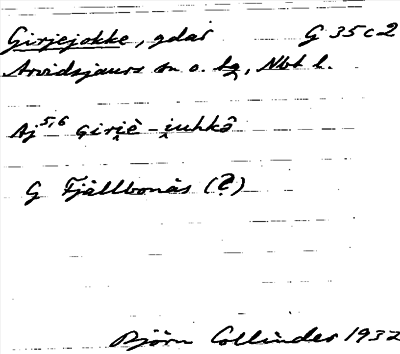 Girjejokke, gdar G 35 c 2
Arvidsjaurs sn o. hg, Nbt l.
Aj 5,6 girjè-juhkô
G Fjällbonäs (?)
Björn Collinder 1932